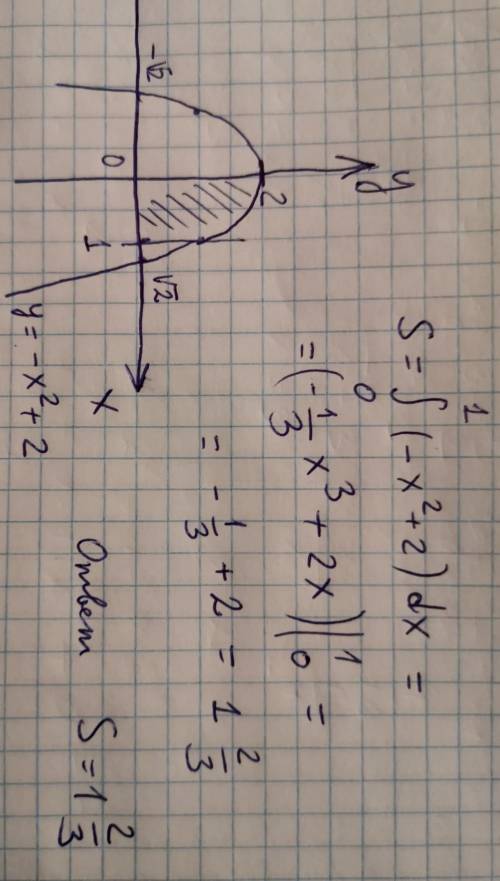 y
-√2
0
2
1
√2
x
y = -x² + 2
S = ∫₀¹ (-x² + 2) dx =
= (-1/3 x³ + 2x) |₀¹ =
= -1/3 + 2 = 1 2/3
Ответ S = 1 2/3